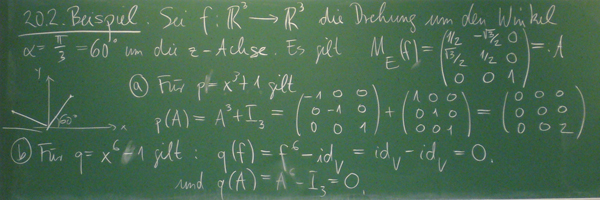 20.2. Beispiel. Sei f: ℝ³ → ℝ³ die Drehung um den Winkel
α = π/3 = 60° um die z-Achse. Es gilt M_E(f) = (1/2 -√3/2 0; √3/2 1/2 0; 0 0 1) =: A
y
60°
x
ⓐ Für p = x³+1 gilt
p(A) = A³ + I₃ = (-1 0 0; 0 -1 0; 0 0 1) + (1 0 0; 0 1 0; 0 0 1) = (0 0 0; 0 0 0; 0 0 2)
ⓑ Für q = x⁶-1 gilt: q(f) = f⁶ - id_V = id_V - id_V = 0,
und q(A) = A⁶ - I₃ = 0.